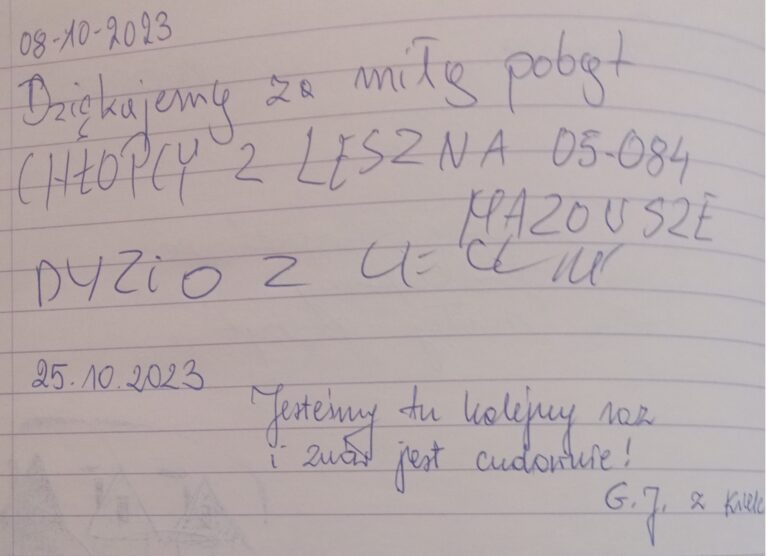 08-10-2023
Dziękujemy za miły pobyt
CHŁOPCY Z LESZNA 05-084
MAZOVSZE
DYZiO Z
25.10.2023
Jesteśmy tu kolejny raz
i znów jest cudownie!
G.J. z